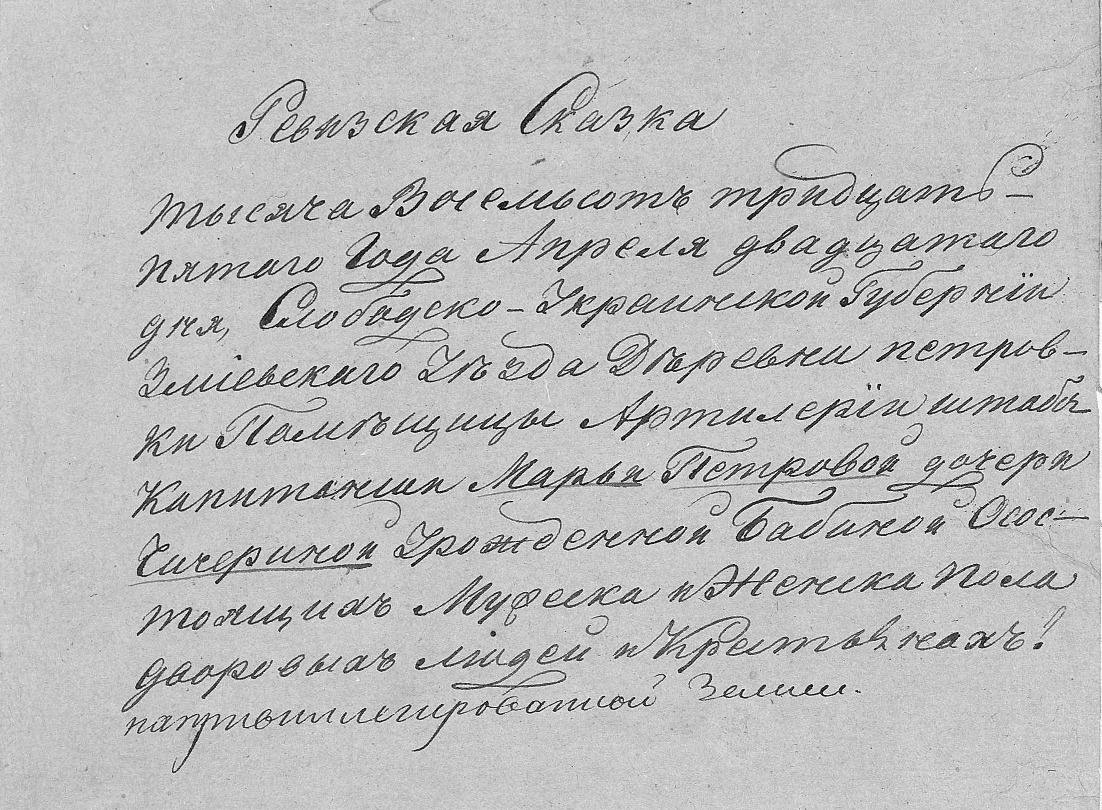 Ревизская Сказка
тысяча Восемьсотъ тридцать-
пятаго Года Апреля двадцатаго
дня, Слободско-Украинской Губернiи
Змiевскаго Уѣзда Дѣревни петров-
ки Помѣщицы Артилерiи штабсъ
Капитанши Марьи Петровой дочери
Чичериной Урожденной Бабиной Осос-
тоящихъ Мужеска и Женска пола
дворовыхъ людей и Крестьянахъ!
напривиллегированной Земли.